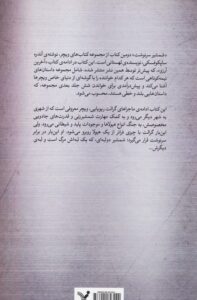 «شمشیر سرنوشت» دومین کتاب از مجموعه کتاب‌های ویچر، نوشته‌ی آندره
ساپکوفسکی، نویسنده‌ی لهستانی است. این کتاب در ادامه‌ی کتاب «آخرین
آرزو»، که پیش‌تر توسط همین نشر منتشر شده، شامل مجموعه داستان‌های
نیمه‌کوتاهی است که هر کدام خواننده را با گوشه‌ای از دنیای خاص ویچرها
آشنا می‌کند و پیش‌درآمدی برای خواندن شش جلد بعدی مجموعه، که
داستان‌هایی بلند و خطی هستند، محسوب می‌شود.
این کتاب ادامه‌ی ماجراهای گرالت ریویایی، ویچر معروفی است که از شهری
به شهر دیگر می‌رود و به کمک مهارت شمشیرزنی و قدرت‌های جادویی
مخصوصش، به جنگ انواع هیولاها و موجودات پلید و شیطانی می‌رود. ولی
این‌بار گرالت با چیزی فراتر از یک هیولا روبرو می‌شود. او این‌بار در برابر
سرنوشت قرار می‌گیرد؛ شمشیر دولبه‌ای، که یک لبه‌اش مرگ است و لبه‌ی
دیگرش...